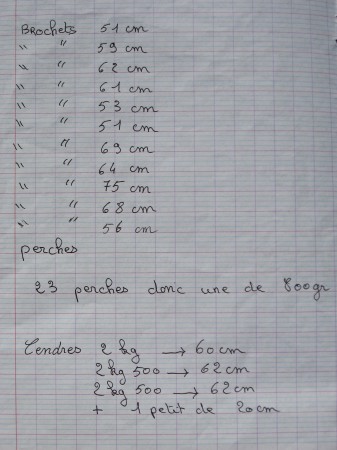 Brochets 51 cm
" " 59 cm
" " 62 cm
" " 61 cm
" " 53 cm
" " 51 cm
" " 69 cm
" " 64 cm
" " 75 cm
" " 68 cm
" " 56 cm
perches
23 perches donc une de 800gr
Cendres 2 kg → 60 cm
2 kg 500 → 62 cm
2 kg 500 → 62 cm
+ 1 petit de 20cm